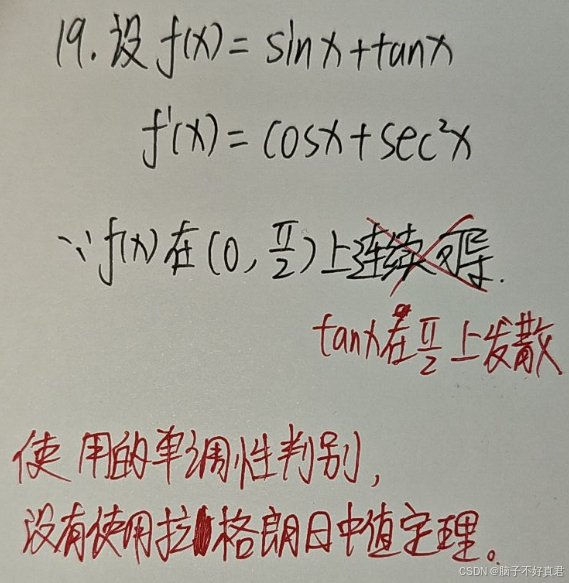 19.设f(x)=sinx+tanx
f'(x)=cosx+sec²x
∵f(x)在(0,π/2)上连续可导.
tanx在π/2上发散
使用的单调性判别,
没有使用拉格朗日中值定理。
CSDN @脑子不好真君